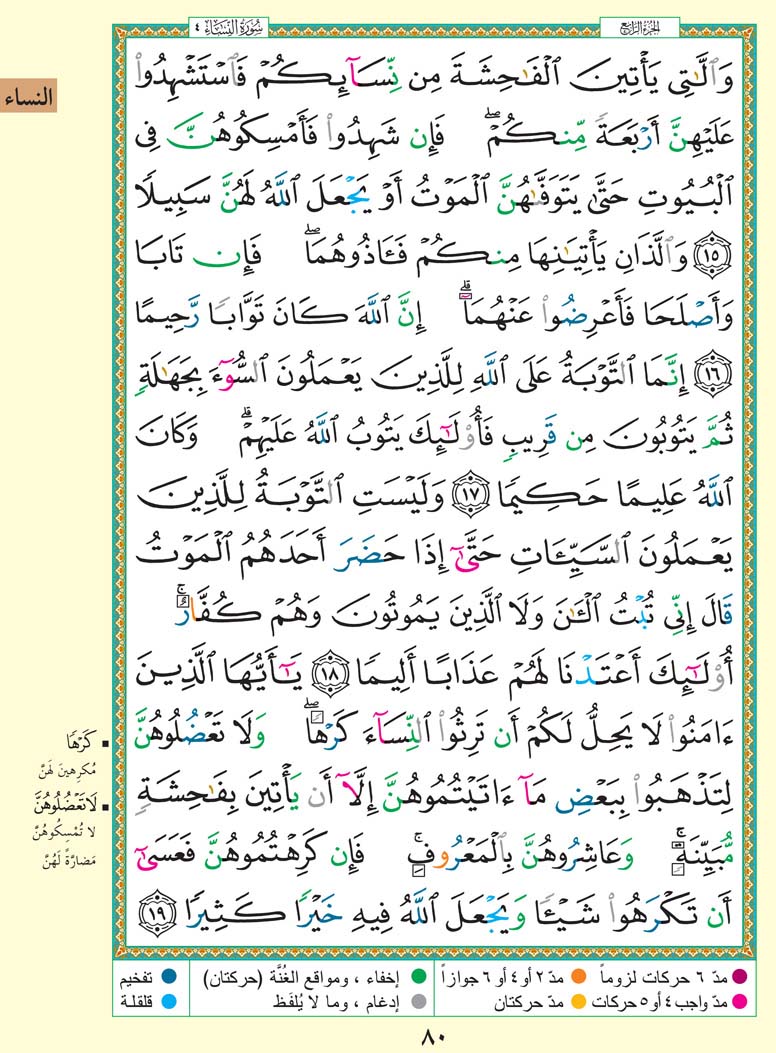 سُورَةُ النِّسَاءِ ٤
الجُزءُ الرَّابِعُ
النساء
وَٱلَّٰتِى يَأۡتِينَ ٱلۡفَٰحِشَةَ مِن نِّسَآئِكُمۡ فَٱسۡتَشۡهِدُوا۟
عَلَيۡهِنَّ أَرۡبَعَةً مِّنكُمۡۖ فَإِن شَهِدُوا۟ فَأَمۡسِكُوهُنَّ فِى
ٱلۡبُيُوتِ حَتَّىٰ يَتَوَفَّىٰهُنَّ ٱلۡمَوۡتُ أَوۡ يَجۡعَلَ ٱللَّهُ لَهُنَّ سَبِيلًا
١٥ وَٱلَّذَانِ يَأۡتِيَٰنِهَا مِنكُمۡ فَـَٔاذُوهُمَاۖ فَإِن تَابَا
وَأَصۡلَحَا فَأَعۡرِضُوا۟ عَنۡهُمَآۗ إِنَّ ٱللَّهَ كَانَ تَوَّابًا رَّحِيمًا
١٦ إِنَّمَا ٱلتَّوۡبَةُ عَلَى ٱللَّهِ لِلَّذِينَ يَعۡمَلُونَ ٱلسُّوٓءَ بِجَهَٰلَةٍ
ثُمَّ يَتُوبُونَ مِن قَرِيبٍ فَأُو۟لَٰٓئِكَ يَتُوبُ ٱللَّهُ عَلَيۡهِمۡۗ وَكَانَ
ٱللَّهُ عَلِيمًا حَكِيمًا ١٧ وَلَيۡسَتِ ٱلتَّوۡبَةُ لِلَّذِينَ
يَعۡمَلُونَ ٱلسَّيِّـَٔاتِ حَتَّىٰٓ إِذَا حَضَرَ أَحَدَهُمُ ٱلۡمَوۡتُ
قَالَ إِنِّى تُبۡتُ ٱلۡـَٰٔنَ وَلَا ٱلَّذِينَ يَمُوتُونَ وَهُمۡ كُفَّارٌۚ
أُو۟لَٰٓئِكَ أَعۡتَدۡنَا لَهُمۡ عَذَابًا أَلِيمًا ١٨ يَٰٓأَيُّهَا ٱلَّذِينَ
ءَامَنُوا۟ لَا يَحِلُّ لَكُمۡ أَن تَرِثُوا۟ ٱلنِّسَآءَ كَرۡهًاۖ وَلَا تَعۡضُلُوهُنَّ
لِتَذۡهَبُوا۟ بِبَعۡضِ مَآ ءَاتَيۡتُمُوهُنَّ إِلَّآ أَن يَأۡتِينَ بِفَٰحِشَةٍ
مُّبَيِّنَةٍۚ وَعَاشِرُوهُنَّ بِٱلۡمَعۡرُوفِۚ فَإِن كَرِهۡتُمُوهُنَّ فَعَسَىٰٓ
أَن تَكۡرَهُوا۟ شَيۡـًٔا وَيَجۡعَلَ ٱللَّهُ فِيهِ خَيۡرًا كَثِيرًا ١٩
▪ كَرۡهًا
مُكرِهينَ لَهُنَّ
▪ لَا تَعۡضُلُوهُنَّ
لا تُمْسِكُوهُنَّ
مَضَارَّةً لَهُنَّ
● مدّ ٦ حركات لزوماً ● مدّ ٢ أو ٤ أو ٦ جوازاً ● إخفاء ، ومواقع الغُنَّة (حركتان) ● تفخيم
● مدّ واجب ٤ أو ٥ حركات ● مدّ حركتان ● إدغام ، وما لا يُلفَظ ● قلقلة
٨٠